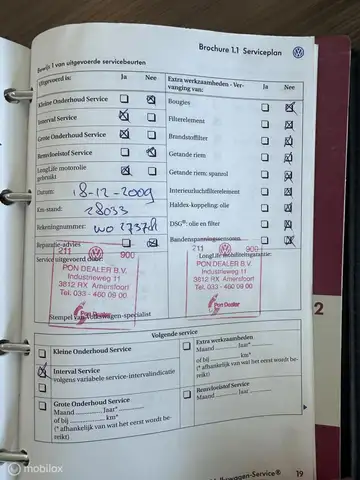 Brochure 1.1 Serviceplan
Bewijs 1 van uitgevoerde servicebeurten
Uitgevoerd is: Ja Nee
Kleine Onderhoud Service
Interval Service
Grote Onderhoud Service
Remvloeistof Service
LongLife motorolie gebruikt
Datum: 18-12-2009
Km-stand: 28033
Rekeningnummer: WO 27378
Reparatie-advies
Service uitgevoerd door:
Extra werkzaamheden - Vervanging van: Ja Nee
Bougies
Filterelement
Brandstoffilter
Getande riem
Getande riem: spanrol
Interieurluchtfilterelement
Haldex-koppeling: olie
DSG®: olie en filter
Bandenspanningssensoren
LongLife mobiliteitsgarantie:
211 900
PON DEALER B.V.
Industrieweg 11
3812 RX Amersfoort
Tel. 033 - 460 09 00
211 900
PON DEALER B.V.
Industrieweg 11
3812 RX Amersfoort
Tel. 033 - 460 09 00
Pon Dealer
Pon Dealer
Stempel van Volkswagen-specialist
2
Volgende service
Kleine Onderhoud Service
Interval Service
volgens variabele service-intervalindicatie
Grote Onderhoud Service
Maand ........ Jaar* ........
of bij ........ km*
(* afhankelijk van wat het eerst wordt bereikt)
Extra werkzaamheden
Maand ........ Jaar* ........
of bij ........ km*
(* afhankelijk van wat het eerst wordt bereikt)
Remvloeistof Service
Maand ........ Jaar ........
Volkswagen-Service® 19
© mobilox